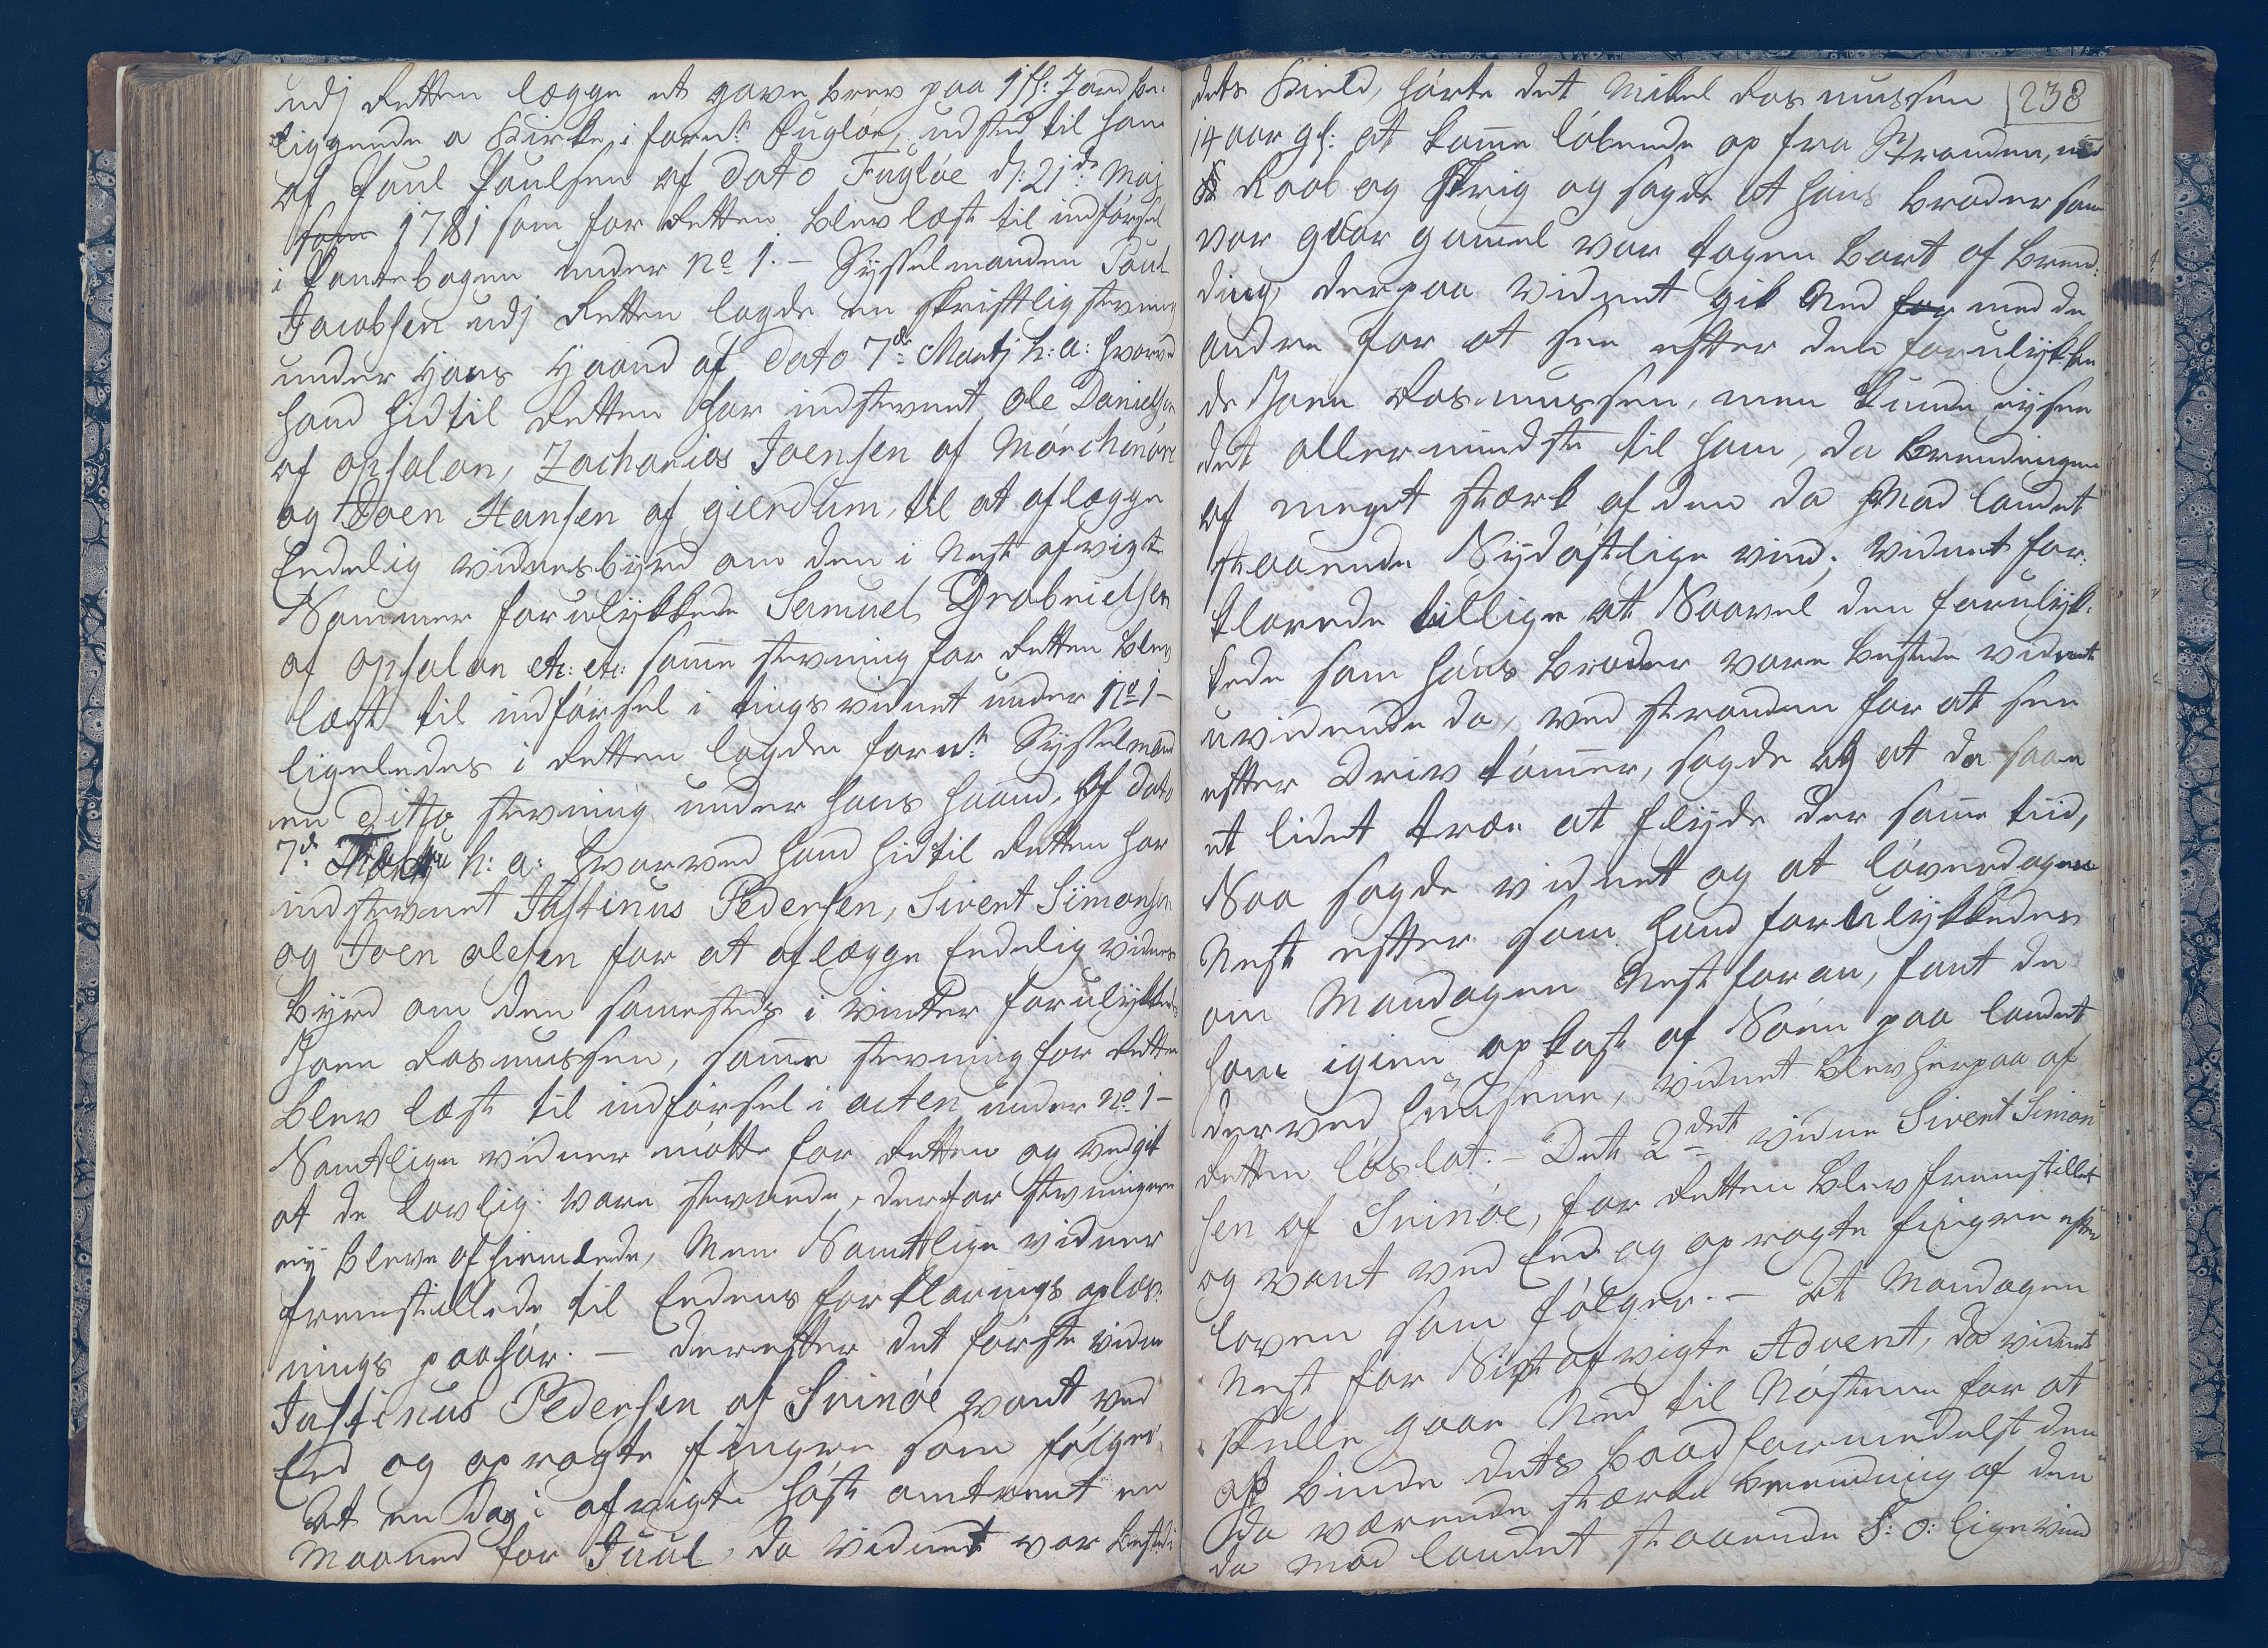 udj Retten lægge et gave brev paa 1 sk: Jord be-
liggende a Kirke i fornt. Fugløe, udsted til ham
af Poul Poulsen af dato Fugløe d: 21de Maj
1781 som for Retten blev læst til indførsel
i Pantebogen under No 1. – Sysselmanden Poul
Jacobsen udj Retten lagde en skriftlig stevning
under Hans Haand af dato 7de Martj h: a: hvorved
hand hidtil Retten har indstevnt Ole Danielsen
af opsalen, Zacharias Joensen af Mørchenøre
og Joen Hansen af gierdum, til at aflægge
Eedelig vidnesbyrd om den i Nest afvigte
Sommer forulykkede Samuel Grabrielsen
af opsalen etc: etc: samme stevning for Retten blev
læst til indførsel i tingsvidnet under No 1 –
ligeledes i Retten lagde fornt. Sysselmand
en ditto stevning under hans haand, af dato
7de h: a: hvorved hand hidtil Retten har
indstevnet Justinus Pedersen, Sivert Simonsen
og Joen olesen for at aflægge Eedelig vidnes
byrd om den sammesteds i vinter forulykkede
Joen Rasmussen, samme stevning for Retten
blev læst til indførsel i acten under No 1 –
Samtlige vidner møtte for Retten og vedgik
at de lovlig vare stevnede, derfor stevningene
ej bleve afhiemlede, Men Samtlige vidner
fremstillede til Eedens forklarings oplæs-
nings paahør. – derefter det første vidne
Justinus Pedersen af Svinøe vant ved
Eed og opragte fingre som følger
At en Dag i afvigte høst omtrent en
Maaned for Juul, da vidnet var bested i
dets Kield, hørte det Mikel Rasmussen
238
14 aar gl: at komme løbende op fra Stranden, med
Raab og Skrig og sagde at hans broder som
var 9 aar gammel var tagen bort af bren-
ding, derpaa vidnet gik Ned med de
andre for at see efter den forulykke
de Joen Rasmussen, men kunde ej see
det allermindste til ham, da brendingen
af meget stærk af den da Mod landet
staaende Sydøstlige vind; vidnet for-
klarede tillige, at Saavel den forulyk-
kede som hans broder vare bestede vidnet
uvidende da, ved stranden for at see
efter Driv tømmer, sagde og at da saae
et lidet træe at flyde der samme tiid,
Saa sagde vidnet og at løverdagen
Nest efter som hand forulykkedes
om Mandagen Nest foran, fant de
ham igien opkast af Søen paa landet
derved huusene, vidnet blev herpaa af
Retten løslat. – Det 2det vidne Sivert Simon
sen af Svinøe, for Retten blev fremstillet
og vant ved Eed og opragte fingre efter
loven som følger. – At Mandagen
Nest for Sist afvigte Advent, da vidnet
skulle gaae Ned til Nøstene for at
binde dets baad formedelst den
da værende stærke brending af den
da Mod landet staaende S: O: lige vind